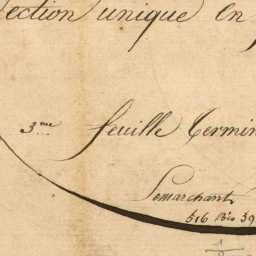 ection unique en
3.me feuille Termin
Lemarchant
516 Bis 39